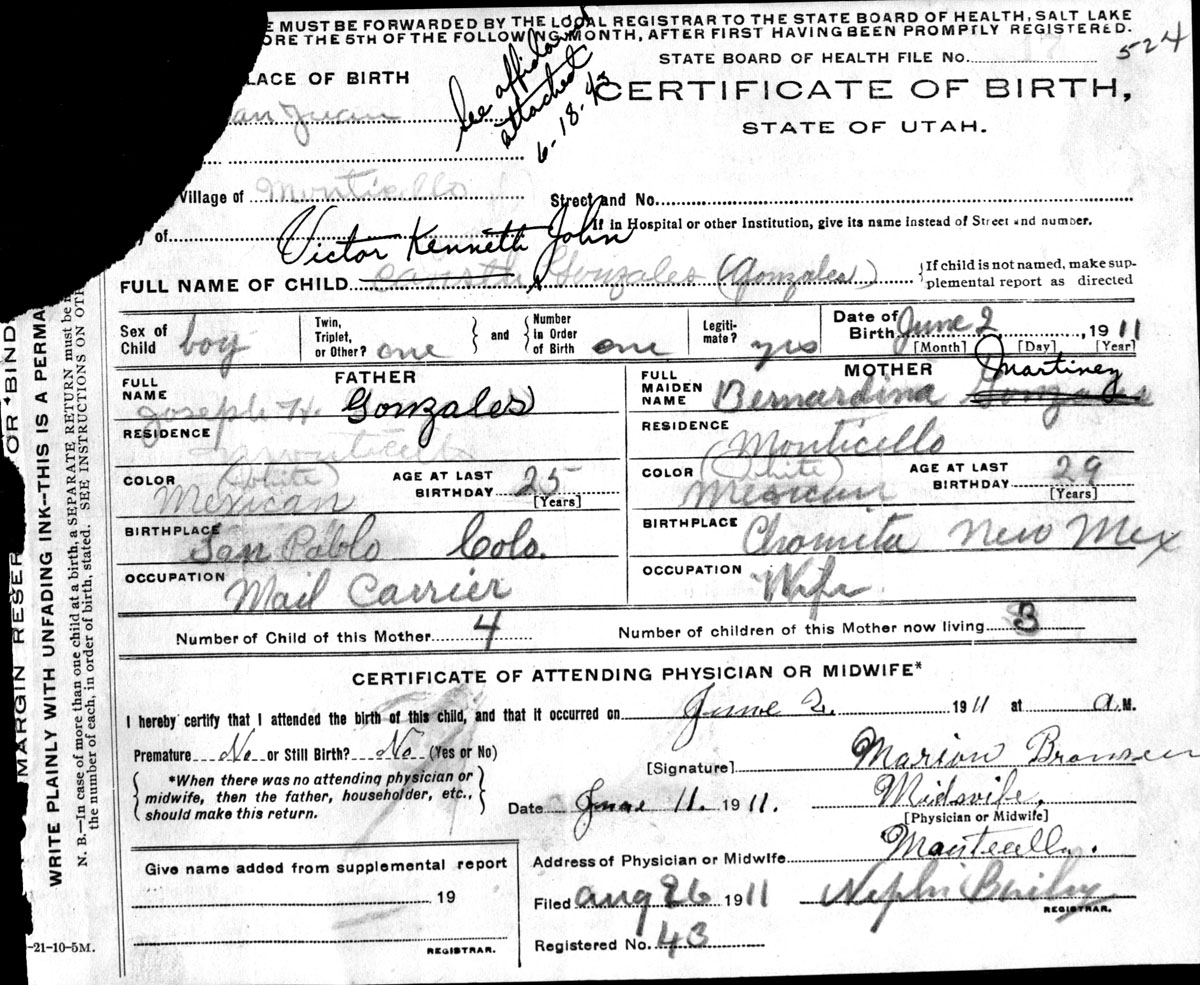 E MUST BE FORWARDED BY THE LOCAL REGISTRAR TO THE STATE BOARD OF HEALTH, SALT LAKE
ORE THE 5TH OF THE FOLLOWING MONTH, AFTER FIRST HAVING BEEN PROMPTLY REGISTERED.
STATE BOARD OF HEALTH FILE No. 17 524
See affidavit
attached
6-18-43
LACE OF BIRTH
CERTIFICATE OF BIRTH,
an Juan
STATE OF UTAH.
Village of Monticello Street and No.
y of If in Hospital or other Institution, give its name instead of Street and number.
Victor Kenneth John
FULL NAME OF CHILD Gonzales (Gonzales) {If child is not named, make sup-
plemental report as directed
Sex of Child boy Twin, Triplet, or Other? one and Number in Order of Birth one Legiti-mate? yes Date of Birth June 2, 1911
[Month] [Day] [Year]
FATHER MOTHER
FULL NAME Joseph H. Gonzales FULL MAIDEN NAME Bernardina Gonzales Martinez
RESIDENCE Monticello RESIDENCE Monticello
COLOR (White) Mexican AGE AT LAST BIRTHDAY 25 [Years] COLOR (White) Mexican AGE AT LAST BIRTHDAY 29 [Years]
BIRTHPLACE San Pablo Colo. BIRTHPLACE Chamita New Mex
OCCUPATION Mail Carrier OCCUPATION Wife
Number of Child of this Mother 4 Number of children of this Mother now living 3
CERTIFICATE OF ATTENDING PHYSICIAN OR MIDWIFE*
I hereby certify that I attended the birth of this child, and that it occurred on June 2, 1911 at A.M.
Premature No or Still Birth? No (Yes or No)
[Signature] Marion Bronson
*When there was no attending physician or
midwife, then the father, householder, etc.,
should make this return.
Date June 11. 1911. Midwife.
[Physician or Midwife]
Give name added from supplemental report
19
REGISTRAR.
Address of Physician or Midwife Monticello.
Filed Aug 26 1911 Nephi Bailey
REGISTRAR.
Registered No. 43
-21-10-5M.
MARGIN RESER OR BIND
WRITE PLAINLY WITH UNFADING INK--THIS IS A PERMA
N. B.—In case of more than one child at a birth, a SEPARATE RETURN must be
the number of each, in order of birth, stated. SEE INSTRUCTIONS ON OT